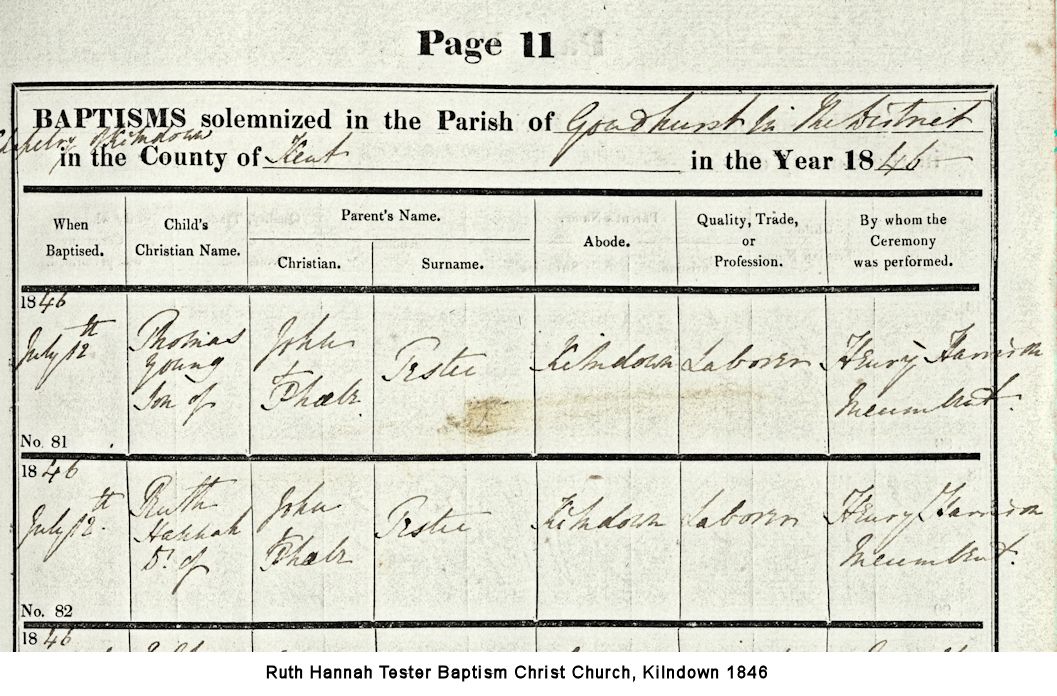 Page 11
BAPTISMS solemnized in the Parish of Goudhurst In The District
Chapelry of Kilndown
in the County of Kent in the Year 1846
When Baptised.
Child's Christian Name.
Parent's Name.
Christian.
Surname.
Abode.
Quality, Trade, or Profession.
By whom the Ceremony was performed.
1846
July 12th
Thomas
Young
Son of
John
&
Phœbe
Tester
Kilndown
Laborer
Henry Harrison
Incumbent.
No. 81
1846
July 12th
Ruth
Hannah
D. of
John
&
Phœbe
Tester
Kilndown
Laborer
Henry Harrison
Incumbent.
No. 82
1846
Ruth Hannah Tester Baptism Christ Church, Kilndown 1846